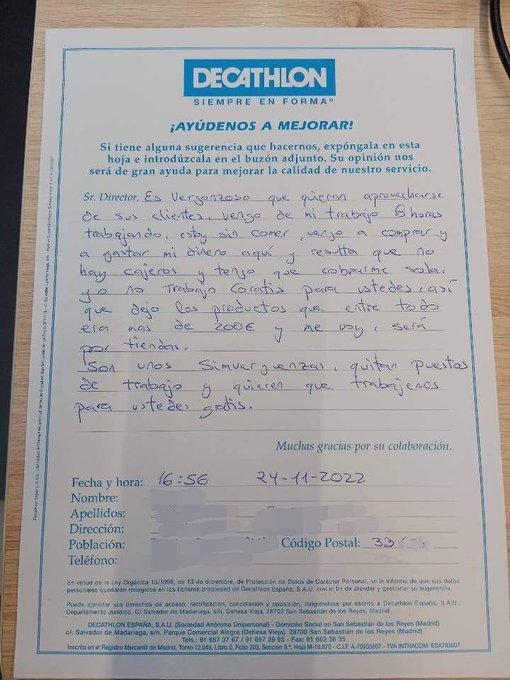 DECATHLON
SIEMPRE EN FORMA®
¡AYÚDENOS A MEJORAR!
Si tiene alguna sugerencia que hacernos, expóngala en esta
hoja e introdúzcala en el buzón adjunto. Su opinión nos
será de gran ayuda para mejorar la calidad de nuestro servicio.
Sr. Director, Es Vergonzoso que quieran aprovecharse
de sus clientes, vengo de mi trabajo 8 horas
trabajando, estoy sin comer, vengo a comprar y
a gastar mi dinero aquí y resulta que no
hay cajeros y tengo que cobrarme sola,
yo no trabajo Gratis para ustedes, así
que dejo los productos que entre todo
era mas de 200€ y me voy, será
por tiendas.
Son unos Sinverguenzas, quitan puestos
de trabajo y quieren que trabajemos
para ustedes gratis.
Muchas gracias por su colaboración.
Fecha y hora: 16:56 24-11-2022
Nombre:
Apellidos:
Dirección:
Población: Código Postal: 33
Teléfono:
En virtud de la Ley Orgánica 15/1999, de 13 de diciembre, de Protección de Datos de Carácter Personal, se le informa de que sus datos
personales quedarán recogidos en los ficheros propiedad de Decathlon España, S.A.U. con el fin de atender y gestionar su sugerencia.
Puede ejercitar sus derechos de acceso, rectificación, cancelación y oposición, dirigiéndose por escrito a Decathlon España, S.A.U.,
Departamento Jurídico, C/ Salvador de Madariaga, s/n, Dehesa Vieja, 28702 San Sebastián de los Reyes (Madrid).
DECATHLON ESPAÑA, S.A.U. (Sociedad Anónima Unipersonal) - Domicilio Social en San Sebastián de los Reyes (Madrid)
c/. Salvador de Madariaga, s/n. Parque Comercial Alegra (Dehesa Vieja). 28700 San Sebastián de los Reyes (Madrid)
Tels.: 91 657 37 67 / 91 657 39 93 - Fax: 91 662 36 35
Inscrita en el Registro Mercantil de Madrid, Tomo 12.049, Libro 0, Folio 203, Sección 8ª, Hoja M-10.870 - C.I.F. A-79935607 - TVA INTRACOM: ESA793607